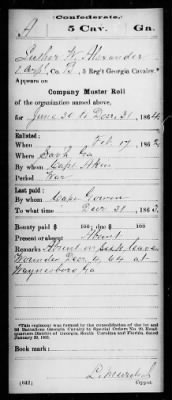 (Confederate.)
A 5 Cav. Ga.
Luther W. Alexander
Corpl, Co. B, 5 Reg't Georgia Cavalry.*
Appears on
Company Muster Roll
of the organization named above,
for June 31 to Dec. 31, 1864.
Enlisted:
When Feb 17, 186
Where Savh Ga
By whom Capt
Period War
Last paid:
By whom Capt Gowen
To what time Dec 31, 1863.
Bounty paid $ 100; due $ 100
Present or absent Absent
Remarks Absent on Sick leave
Wounded Dec. 4, 64 at
Waynesboro Ga
*This regiment was formed by the consolidation of the 1st and
2d Battalions Georgia Cavalry by Special Orders No. 20, Head-
quarters District of Georgia, South Carolina and Florida, dated
January 20, 1863.
Book mark:
(642)
Copyist.